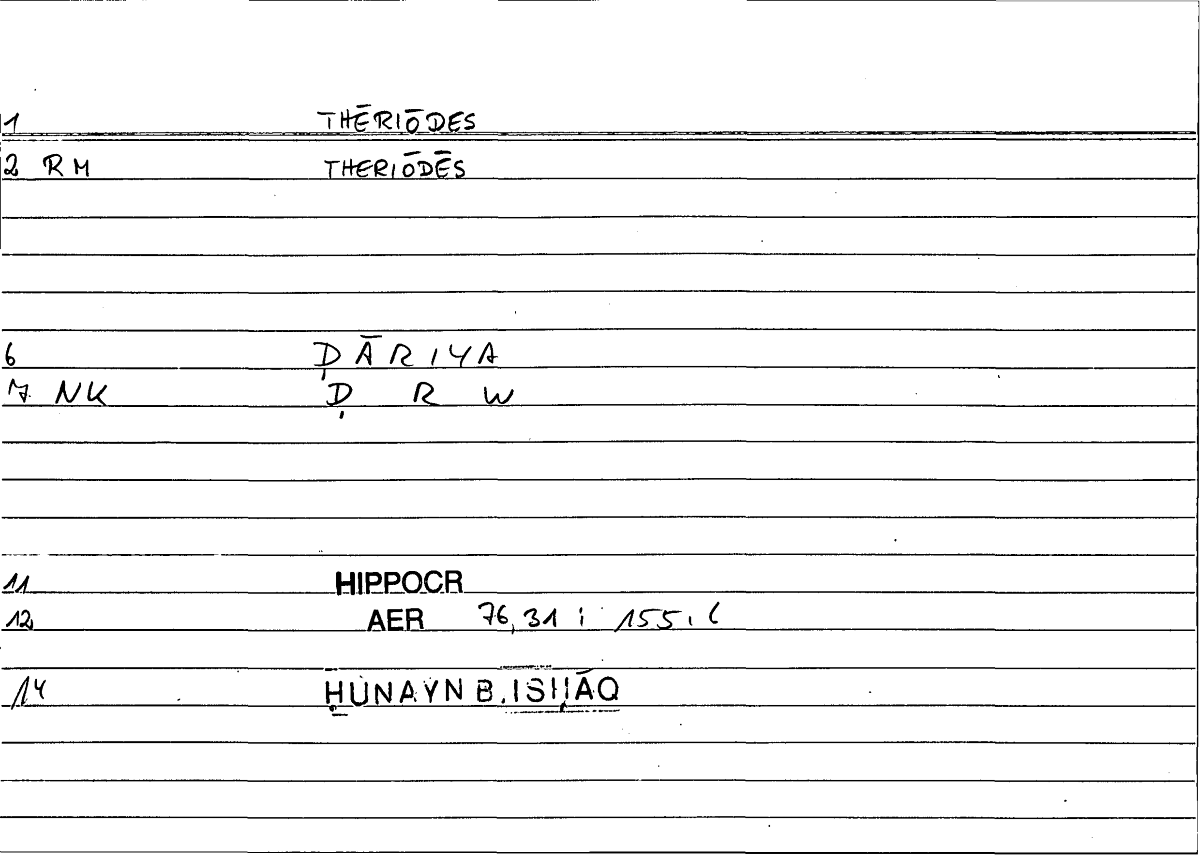 1 THĒRIŌDES
2 RM THERIŌDĒS
6 ḌĀRIYA
7 NK Ḍ R W
11 HIPPOCR
12 AER 76,31 ; 155,6
14 ḤUNAYN B. ISḤĀQ